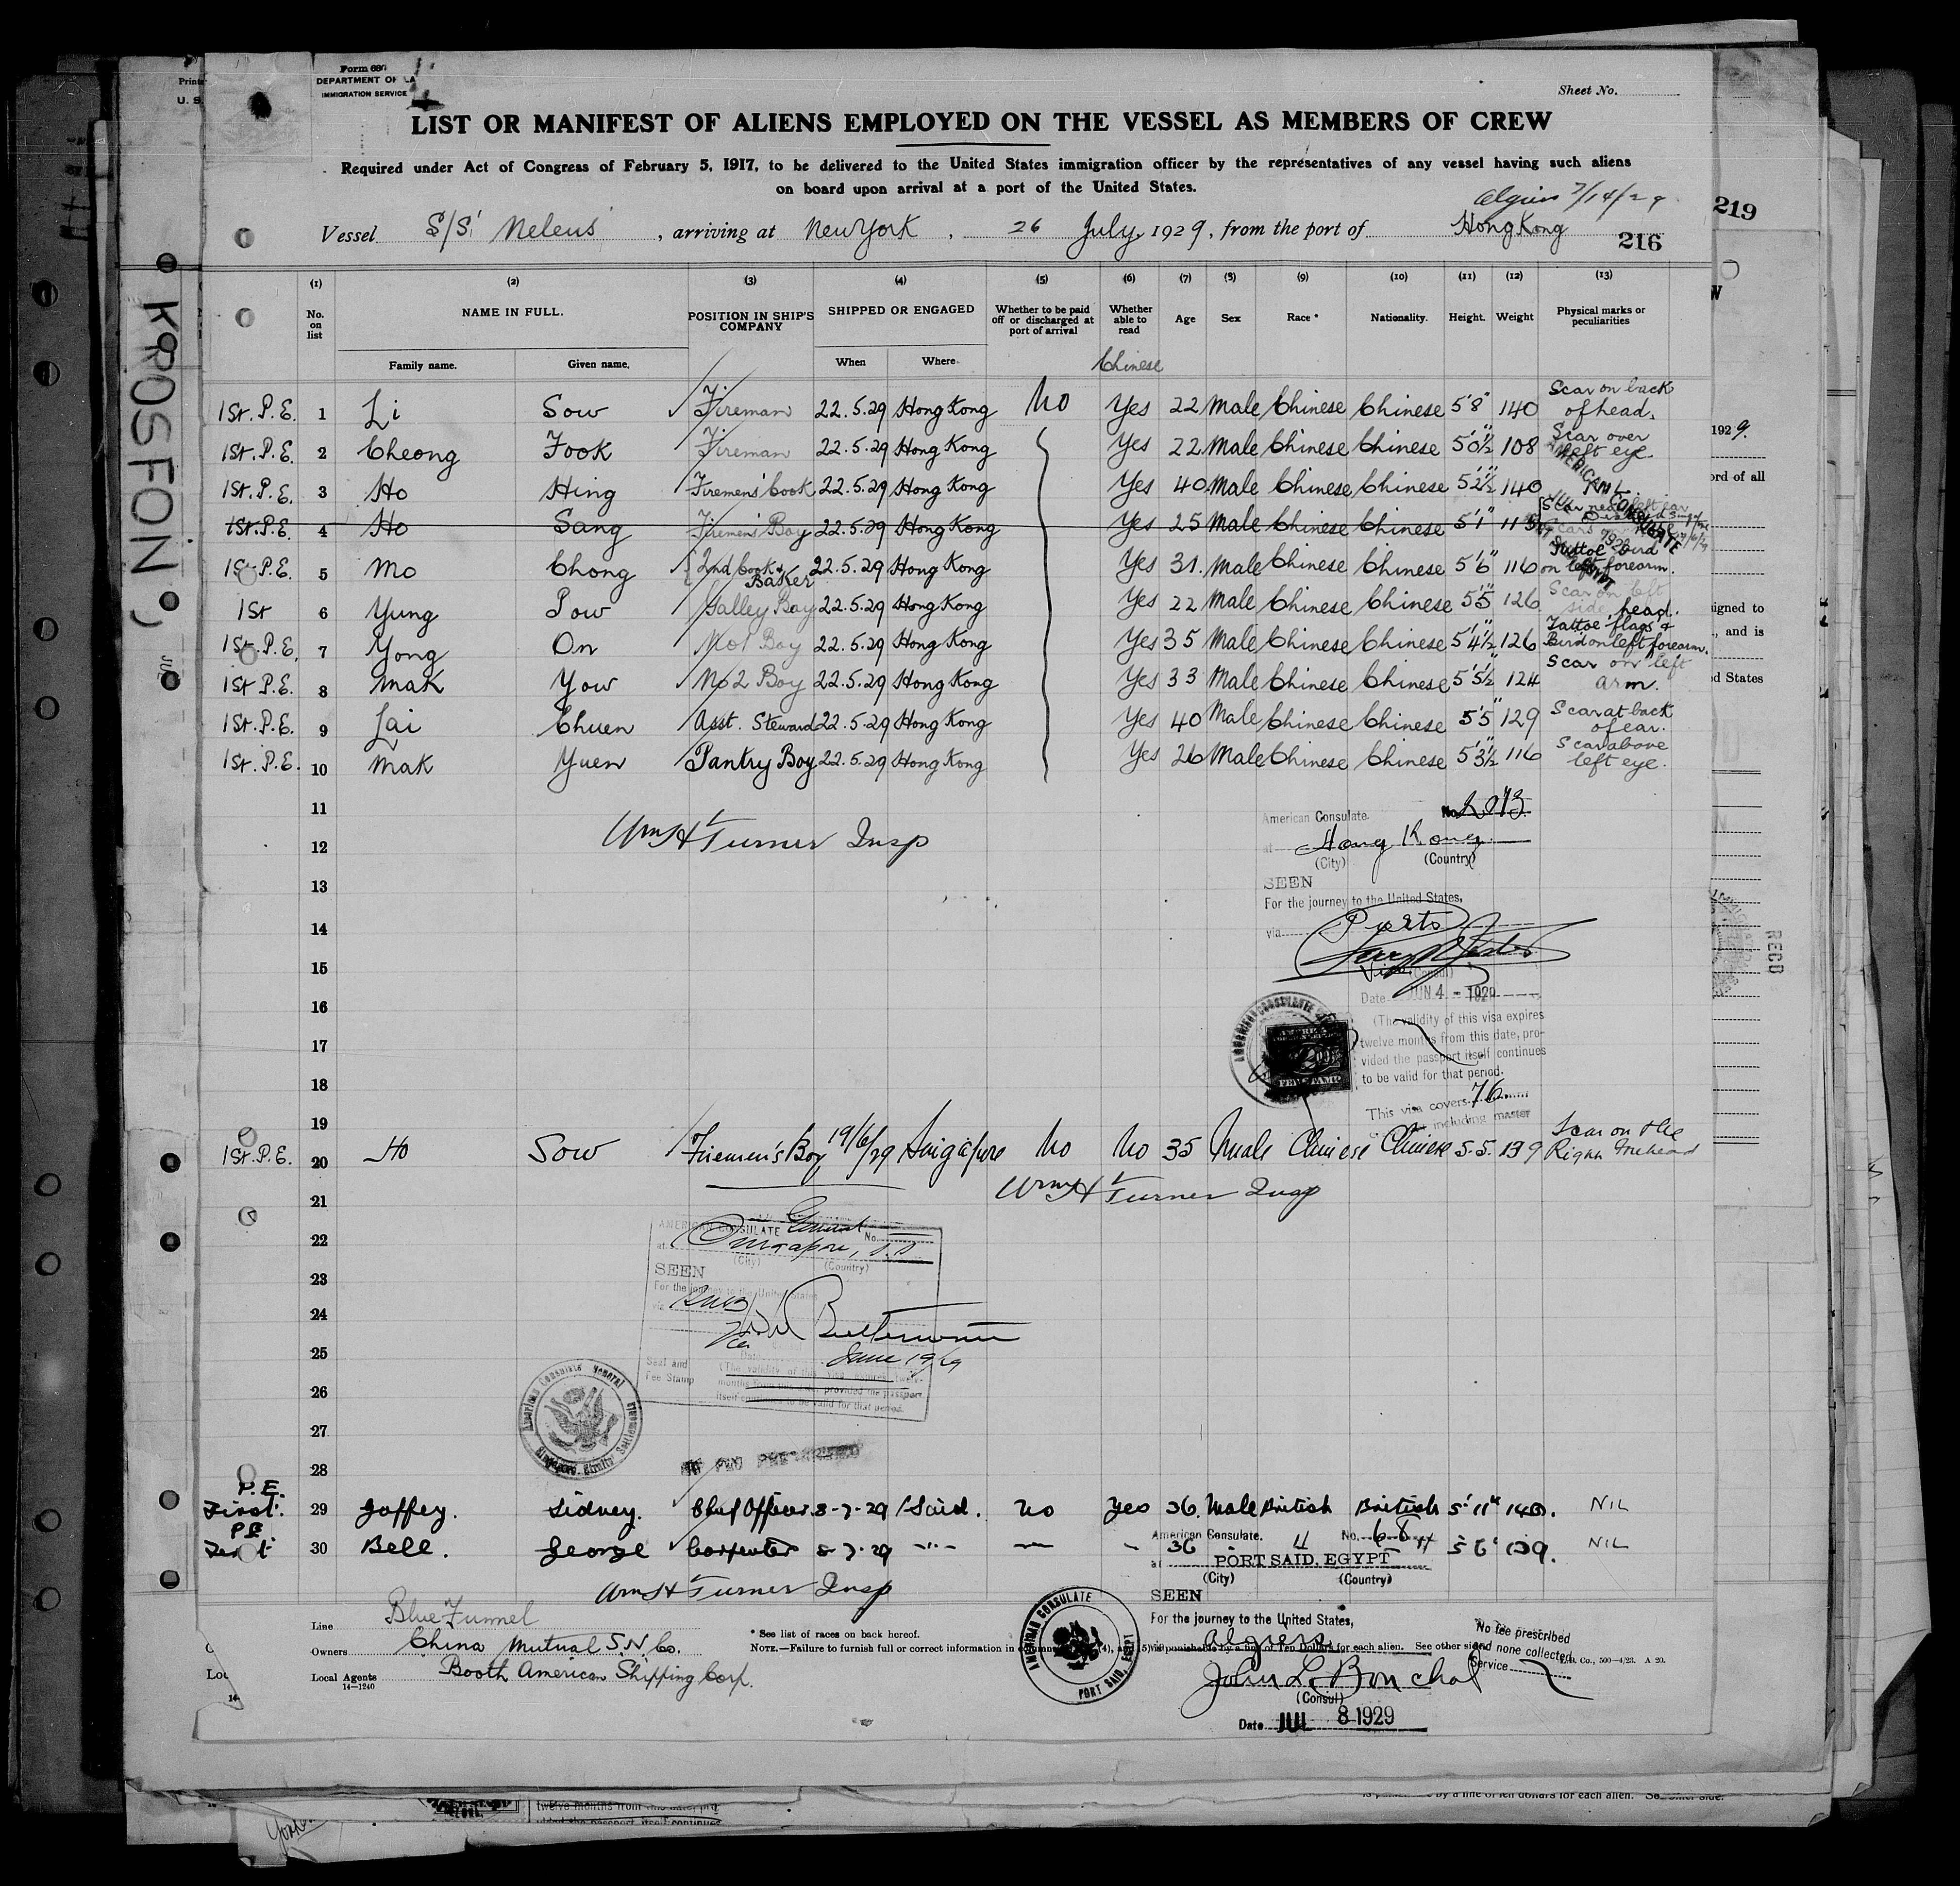 Form 680
DEPARTMENT OF LA
IMMIGRATION SERVICE
Sheet No.
LIST OR MANIFEST OF ALIENS EMPLOYED ON THE VESSEL AS MEMBERS OF CREW
Required under Act of Congress of February 5, 1917, to be delivered to the United States immigration officer by the representatives of any vessel having such aliens
on board upon arrival at a port of the United States.
Algiers 7/14/29
219
Vessel S/S Neleus, arriving at New York, 26 July, 1929, from the port of Hong Kong
216
(1) (2) (3) (4) (5) (6) (7) (8) (9) (10) (11) (12) (13)
No. on list NAME IN FULL. POSITION IN SHIP'S COMPANY SHIPPED OR ENGAGED Whether to be paid off or discharged at port of arrival Whether able to read Age Sex Race * Nationality. Height. Weight Physical marks or peculiarities
Family name. Given name. When Where Chinese
1St. P.E. 1 Li Sow Fireman 22.5.29 Hong Kong No Yes 22 Male Chinese Chinese 5'8" 140 Scar on back of head.
1St. P.E. 2 Cheong Fook Fireman 22.5.29 Hong Kong Yes 22 Male Chinese Chinese 5'0½" 108 Scar over left eye.
1St. P.E. 3 Ho Hing Firemen's Cook 22.5.29 Hong Kong Yes 40 Male Chinese Chinese 5'2½" 140
1St. P.E. 4 Ho Sang Firemen's Boy 22.5.29 Hong Kong Yes 25 Male Chinese Chinese 5'1" 115 Scar near left ear
AMERICAN CONSULATE
1St. P.E. 5 Mo Chong 2nd Cook & Baker 22.5.29 Hong Kong Yes 31. Male Chinese Chinese 5'6" 116 Tattoe bird on left forearm.
1St 6 Yung Pow Galley Boy 22.5.29 Hong Kong Yes 22 Male Chinese Chinese 5'5" 126 Scar on left side head.
1St. P.E. 7 Yong On No1 Boy 22.5.29 Hong Kong Yes 35 Male Chinese Chinese 5'4½" 126 Tattoe flags & Bird on left forearm.
1St P.E. 8 Mak Yow No 2 Boy 22.5.29 Hong Kong Yes 33 Male Chinese Chinese 5'5½" 124 Scar on left arm.
1St. P.E. 9 Lai Chuen Asst. Steward 22.5.29 Hong Kong Yes 40 Male Chinese Chinese 5'5" 129 Scar at back of ear.
1St. P.E. 10 Mak Yuen Pantry Boy 22.5.29 Hong Kong Yes 26 Male Chinese Chinese 5'3½" 116 Scar above left eye.
11
12 Wm H Turner Insp
13
14
15
16
17
18
19
American Consulate. No. 2013
at Hong Kong
(City) (Country)
SEEN
For the journey to the United States,
via Ports
(Consul)
Date JUN 4 - 1929
(The validity of this visa expires
twelve months from this date, pro-
vided the passport itself continues
to be valid for that period.
This visa covers 76
including master
FEE STAMP
1St. P.E. 20 Ho Sow Firemen's Boy 19/6/29 Singapore No No 35 Male Chinese Chinese 5.5. 139 Scar on the Right Forehead
Wm H Turner Insp
21
22
23
24
25
26
27
28
AMERICAN CONSULATE General No.
at Singapore, S.S.
(City) (Country)
SEEN
For the journey to the United States
via
June 19/29
Seal and Fee Stamp
(The validity of this visa expires twelve
months from this date, provided the passport
itself continues to be valid for that period.
American Consulate General Singapore, Straits Settlements
P.E.
First. 29 Jaffey. Sidney. Chief Officer 8-7-29 P/Said. No Yes 36. Male British British 5'11" 143. NIL
P.E.
First 30 Bell. George Carpenter 8-7-29 -"- 36 5'6" 139. NIL
Wm H Turner Insp
American Consulate. No. 68
at PORT SAID, EGYPT
(City) (Country)
SEEN
For the journey to the United States,
via Algiers
(Consul)
Date JUL 8 1929
No fee prescribed
and none collected.
Service
AMERICAN CONSULATE PORT SAID, EGYPT
Line Blue Funnel
Owners China Mutual S.N. Co.
Local Agents Booth American Shipping Corp.
14—1240
* See list of races on back hereof.
NOTE.—Failure to furnish full or correct information in columns (4), and (5) is punishable by a fine of Ten Dollars for each alien. See other side.
Co., 500—4/23. A 20.
KROSFON
1929.
ord of all
signed to
, and is
d States
RECD
twelve months from this date, pro
by a fine of ten dollars for each alien.